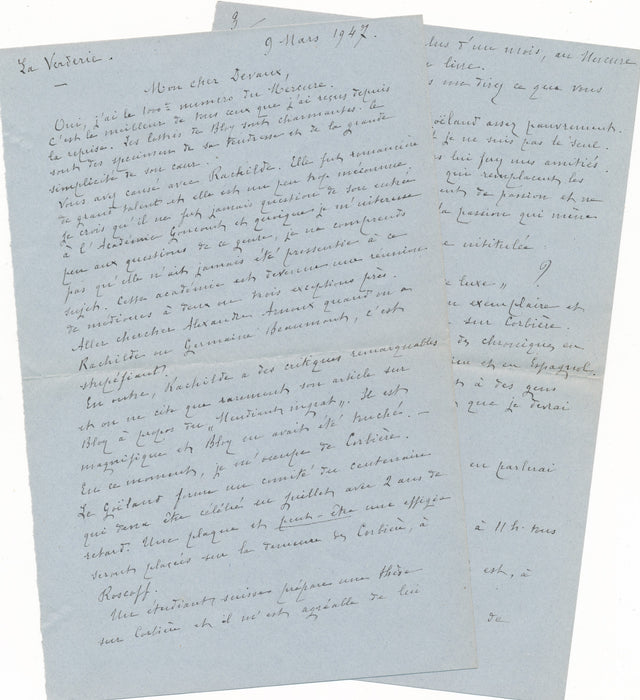 La Verderie.
9 Mars 1947.
Mon cher Devaux,
Oui, j'ai le 1000e numéro du Mercure.
C'est le meilleur de tous ceux que j'ai reçus depuis
la reprise. Les lettres de Bloy sont charmantes. Ce
sont des specimens de sa tendresse et de la grande
simplicité de son cœur.
Vous avez causé avec Rachilde. Elle fut romancière
de grand talent et elle est un peu trop méconnue.
Je crois qu'il ne fut jamais question de son entrée
à l'Académie Goncourt et quoique je m'intéresse
peu aux questions de ce genre, je ne comprends
pas qu'elle n'ait jamais été pressentie à ce
sujet. Cette académie est devenue une réunion
de médiocres à deux ou trois exceptions près.
Aller chercher Alexandre Arnoux quand on a
Rachilde ou Germaine Beaumont, c'est
stupéfiant!
En outre, Rachilde a des critiques remarquables
et on ne cite que rarement son article sur
Bloy à propos du "Mendiant ingrat". Il est
magnifique et Bloy en avait été touché. —
En ce moment, je m'occupe de Corbière.
Le Goëland forme un comité du centenaire
qui devra être célébré en Juillet avec 2 ans de
retard. Une plaque et peut-être une effigie
seront placées sur la demeure des Corbière, à
Roscoff.
Un étudiant suisse prépare une thèse
sur Corbière et il m'est agréable de lui
3
plus d'un mois, au Mercure
livre.
me direz ce que vous
Goëland assez pauvrement.
et je ne suis pas le seul.
lui fay mes amitiés.
qui remplacent les
de passion et ne
la passion qui mène
intitulée
de luxe" ?
exemplaire et
sur Corbière.
des chroniques en
et en Espagnol.
à des gens
que je devrai
en parlerai
à 11 h. tous
est, à
de